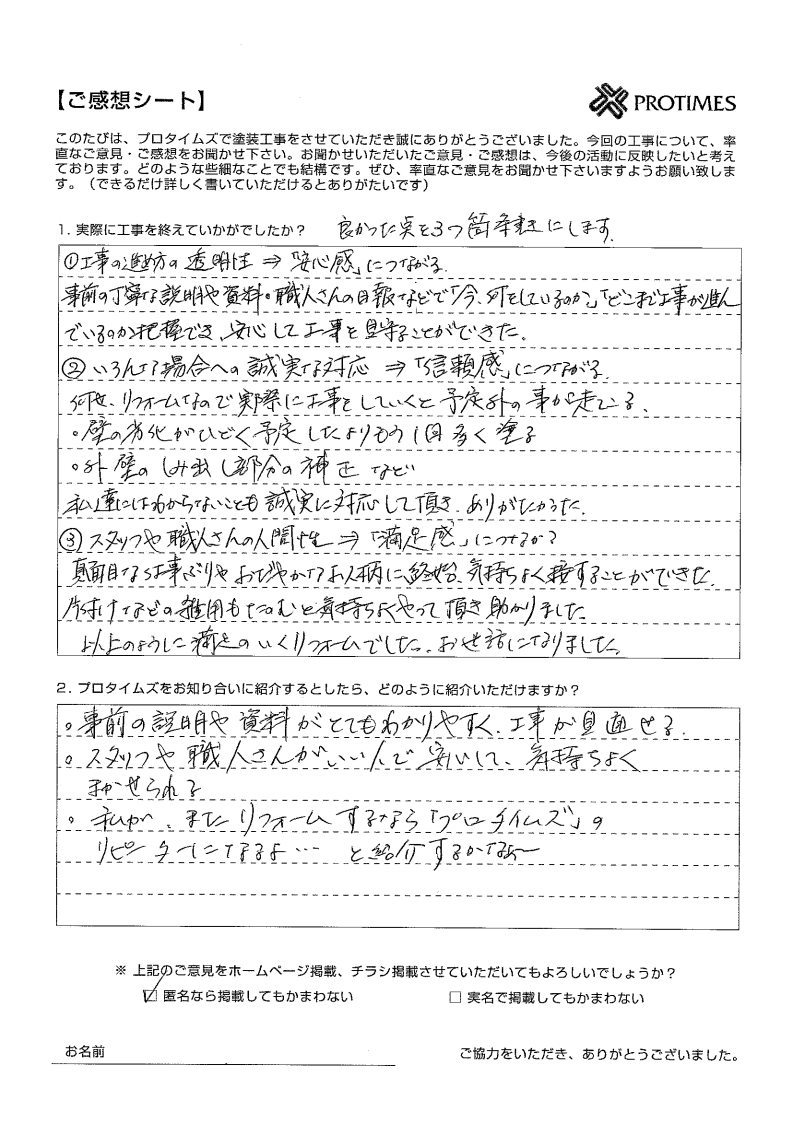 【ご感想シート】
PROTIMES
このたびは、プロタイムズで塗装工事をさせていただき誠にありがとうございました。今回の工事について、率
直なご意見・ご感想をお聞かせ下さい。お聞かせいただいたご意見・ご感想は、今後の活動に反映したいと考え
ております。どのような些細なことでも結構です。ぜひ、率直なご意見をお聞かせ下さいますようお願い致しま
す。（できるだけ詳しく書いていただけるとありがたいです）
1. 実際に工事を終えていかがでしたか？ 良かった点を3つ箇条書きにします。
①工事の進め方の透明性 ⇒「安心感」につながる。
事前の丁寧な説明や資料・職人さんの日報などで「今、何をしているのか」「どこまで工事が進ん
でいるのか把握でき、安心して工事を見守ることができた。
②いろんな場合への誠実な対応 ⇒「信頼感」につながる。
何せ、リフォームなので実際に工事をしていくと予定外の事が走ている、
・壁の劣化がひどく予定したよりもう1回多く塗る
・外壁のしみ出し部分の補正など
私達にはわからないことも誠実に対応して頂き、ありがたかった。
③スタッフや職人さんの人間性 ⇒「満足感」につながる
真面目な仕事ぶりやおだやかなお人柄に終始、気持ちよく接することができた。
片付けなどの雑用もたのむと気持ちよくやって頂き助かりました
以上のように満足のいくリフォームでした。お世話になりました。
2. プロタイムズをお知り合いに紹介するとしたら、どのように紹介いただけますか？
。事前の説明や資料がとてもわかりやすく、工事が見通せる。
。スタッフや職人さんがいい人で安心して、気持ちよく
まかせられる
。私が、またリフォームするなら「プロタイムズ」の
リピーターになるよ… と紹介するかなぁ〜
※ 上記のご意見をホームページ掲載、チラシ掲載させていただいてもよろしいでしょうか？
☑ 匿名なら掲載してもかまわない □ 実名で掲載してもかまわない
お名前 ご協力をいただき、ありがとうございました。